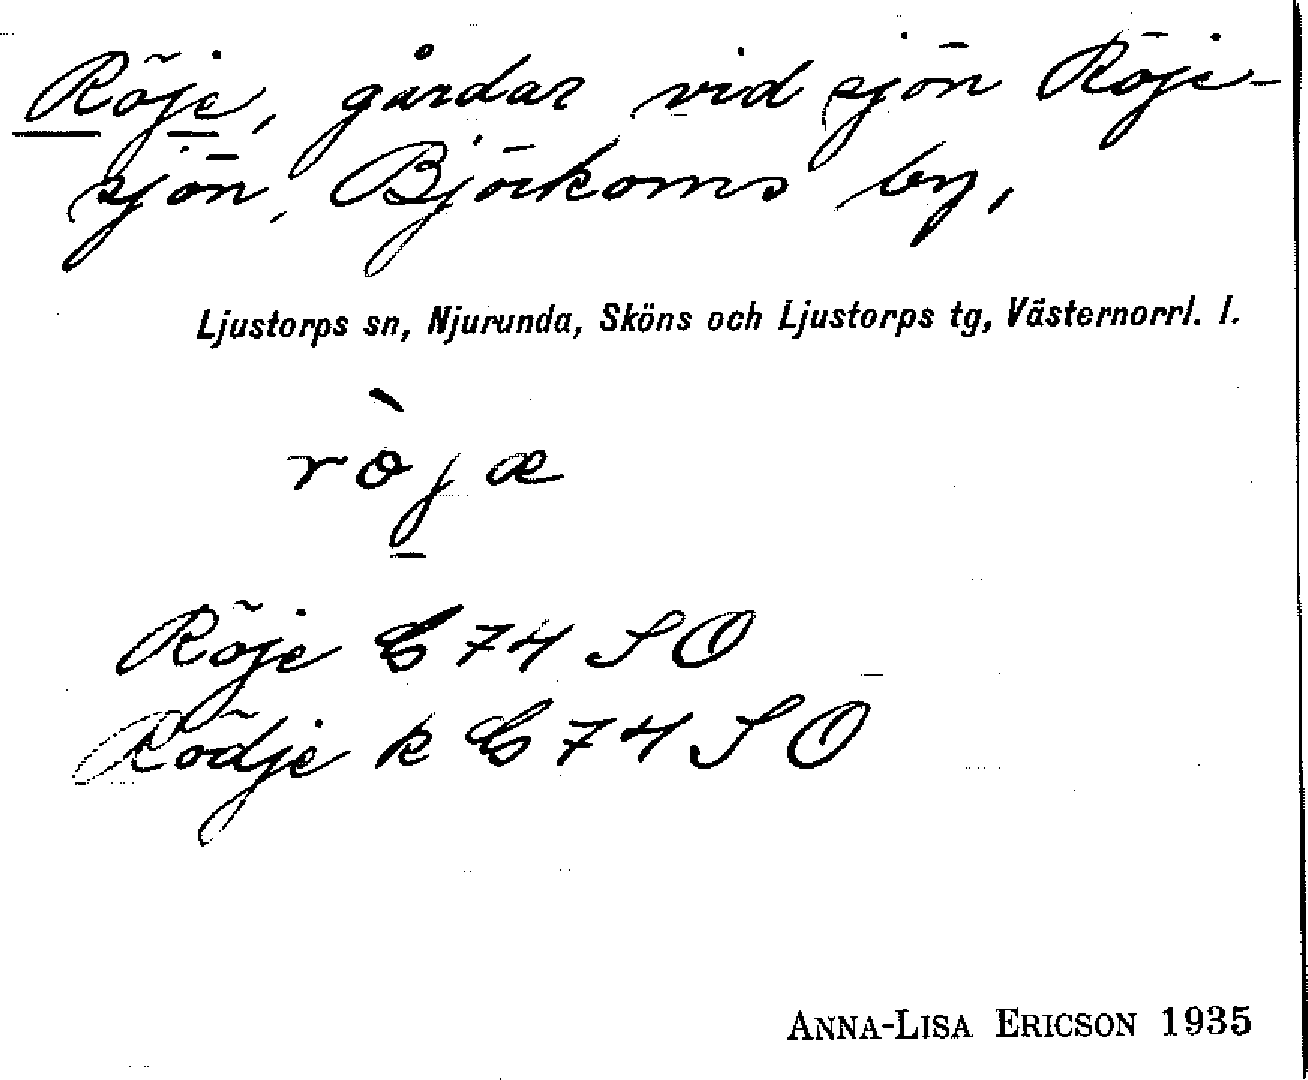 Röje, gårdar vid sjön Röje-
sjön, Björkoms by,
Ljustorps sn, Njurunda, Sköns och Ljustorps tg, Västernorrl. l.
ròjæ
Röje G 74 SO
Rödje k G 74 SO
ANNA-LISA ERICSON 1935